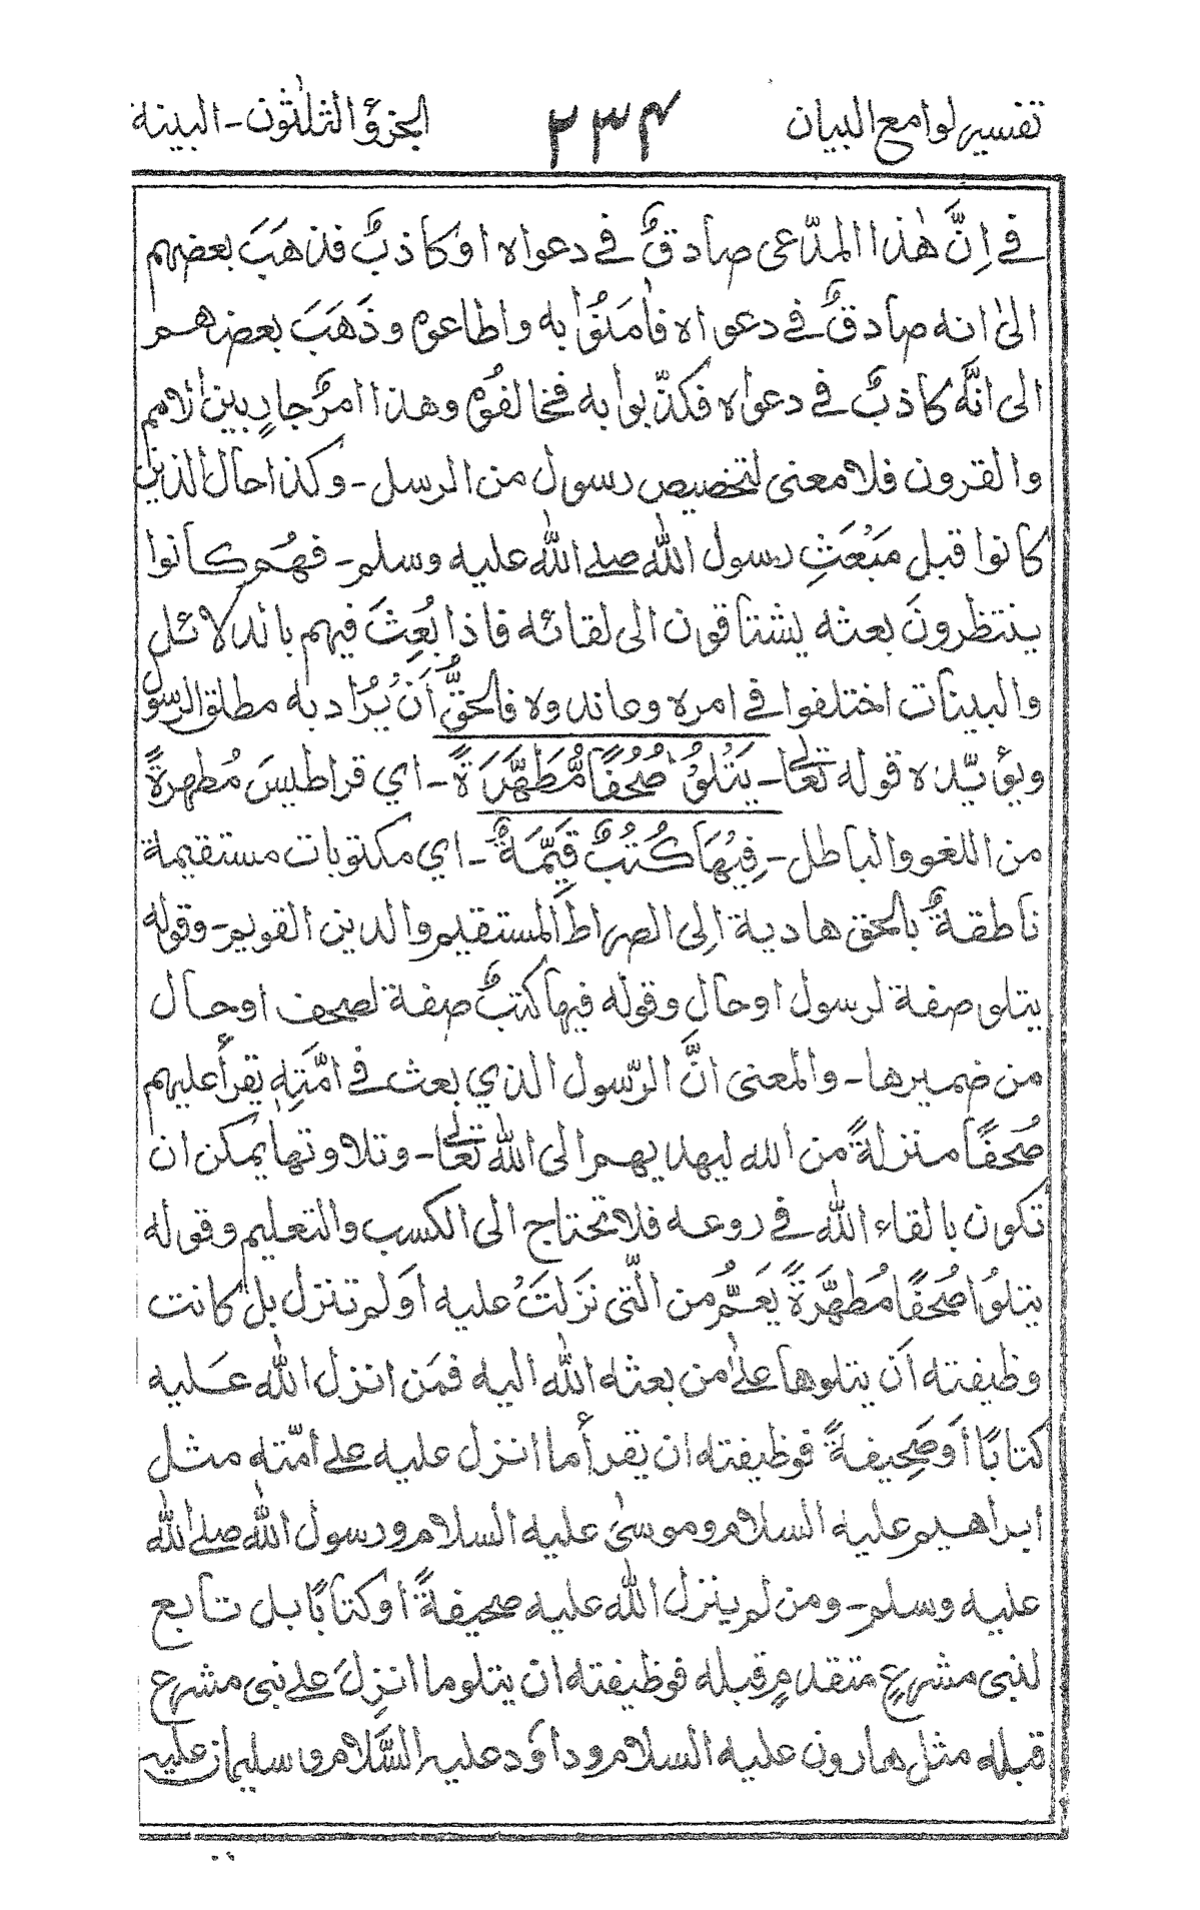 تفسير لوامع البيان ٢٣٤ الجزؤ الثلٰثون - البينة
في اِنَّ هٰذا المدّعى صادقٌ في دعواه او كاذبٌ فذهَبَ بعضهم
الىٰ انه صادقٌ في دعواه فاٰمَنُوْا به واطاعوه وذَهَبَ بعضهم
الى انَّه كاذبٌ في دعواه فكذّبوا به فخالفوه وهذا امرٌ جارٍ بين الامم
والقرون فلا معنى لتخصيص رسول من الرسل - وكذا حال الذين
كانوا قبل مَبْعَثِ رسول اللّٰه صلى اللّٰه عليه وسلم - فهُم كانوا
ينتظرونَ بعثه يشتاقون الى لقائه فاذا بُعِثَ فيهم بالدلائل
والبينات اختلفوا في امره وعاندوه فالحقُّ اَنْ يُرَاد به مطلق الرسول
ويؤيّده قوله تعالٰى - يَتْلُوْ صُحُفًا مُّطَهَّرَةً - اي قراطيسَ مُطهرةً
من اللغو والباطل - فِيْهَا كُتُبٌ قَيِّمَةٌ - اي مكتوبات مستقيمة
ناطقةٌ بالحق هادية اِلى الصراط المستقيم والدين القويم - وقوله
يتلو صفة لرسول او حال وقوله فيها كتبٌ صفة لصحف او حال
من ضميرها - والمعنى انَّ الرّسول الذي بعث في امَّتِهٖ يقرأ عليهم
صُحفًا منزلةً من الله ليهديهم الى اللّٰه تعالٰى - وتلاوتها يمكن ان
تكون بالقاء اللّٰه في روعه فلا تحتاج الى الكسب والتعليم وقوله
يتلوْا صُحفًا مُطهَّرةً يَعُمُّ من الَّتى نَزَلَتْ عليه اَو لم تنزل بل كانت
وظيفته اَن يتلوها علىٰ من بعثه اللّٰه اليه فمَن انزل اللّٰه عليه
كتابًا اَو صَحِيفةً فوظيفته ان يقرأ ما انزل عليه على امّته مثل
ابراهيم عليه السلام وموسىٰ عليه السلام ورسول اللّٰه صلى اللّٰه
عليه وسلم - ومن لم ينزل اللّٰه عليه صحيفةً او كتابًا بل تابع
لنبى مشرعٍ متقدمٍ قبله فوظيفته ان يتلو ما انزلَ على نبى مشرع
قبله مثل هارون عليه السلام وداوٗد عليه السَّلام وسليمان عليه